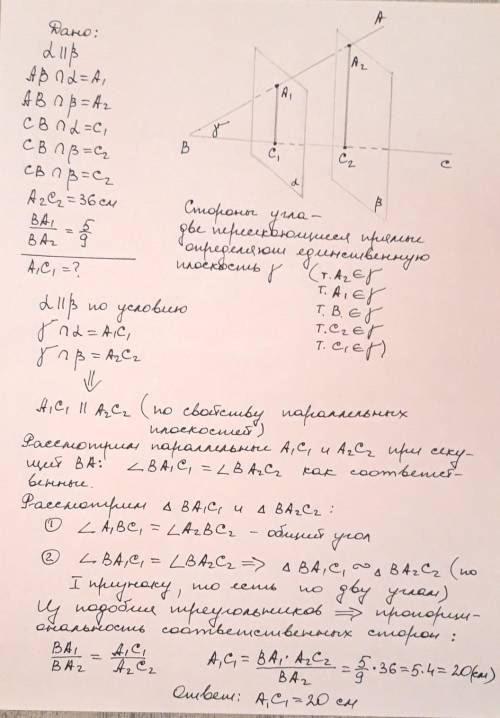 Дано:
α || β
AB ∩ α = A₁
AB ∩ β = A₂
CB ∩ α = C₁
CB ∩ β = C₂
CB ∩ β = C₂
A₂C₂ = 36 см
BA₁/BA₂ = 5/9
A₁C₁ = ?
A
A₂
A₁
γ
B
C₁
C₂
C
α
β
Стороны угла –
две пересекающиеся прямые
определяют единственную
плоскость γ (т. A₂ ∈ γ
т. A₁ ∈ γ
т. B ∈ γ
т. C₂ ∈ γ
т. C₁ ∈ γ)
α || β по условию
γ ∩ α = A₁C₁
γ ∩ β = A₂C₂
⇓
A₁C₁ || A₂C₂ (по свойству параллельных
плоскостей)
Рассмотрим параллельные A₁C₁ и A₂C₂ при секу-
щей BA: ∠BA₁C₁ = ∠BA₂C₂ как соответст-
венные.
Рассмотрим △ BA₁C₁ и △ BA₂C₂ :
① ∠A₁BC₁ = ∠A₂BC₂ – общий угол
② ∠BA₁C₁ = ∠BA₂C₂ ⇒ △ BA₁C₁ ∾ △ BA₂C₂ (по
I признаку, то есть по двум углам)
Из подобия треугольников ⇒ пропорци-
ональность соответственных сторон :
BA₁/BA₂ = A₁C₁/A₂C₂ A₁C₁ = BA₁ · A₂C₂/BA₂ = 5/9 · 36 = 5·4 = 20 (см)
Ответ: A₁C₁ = 20 см